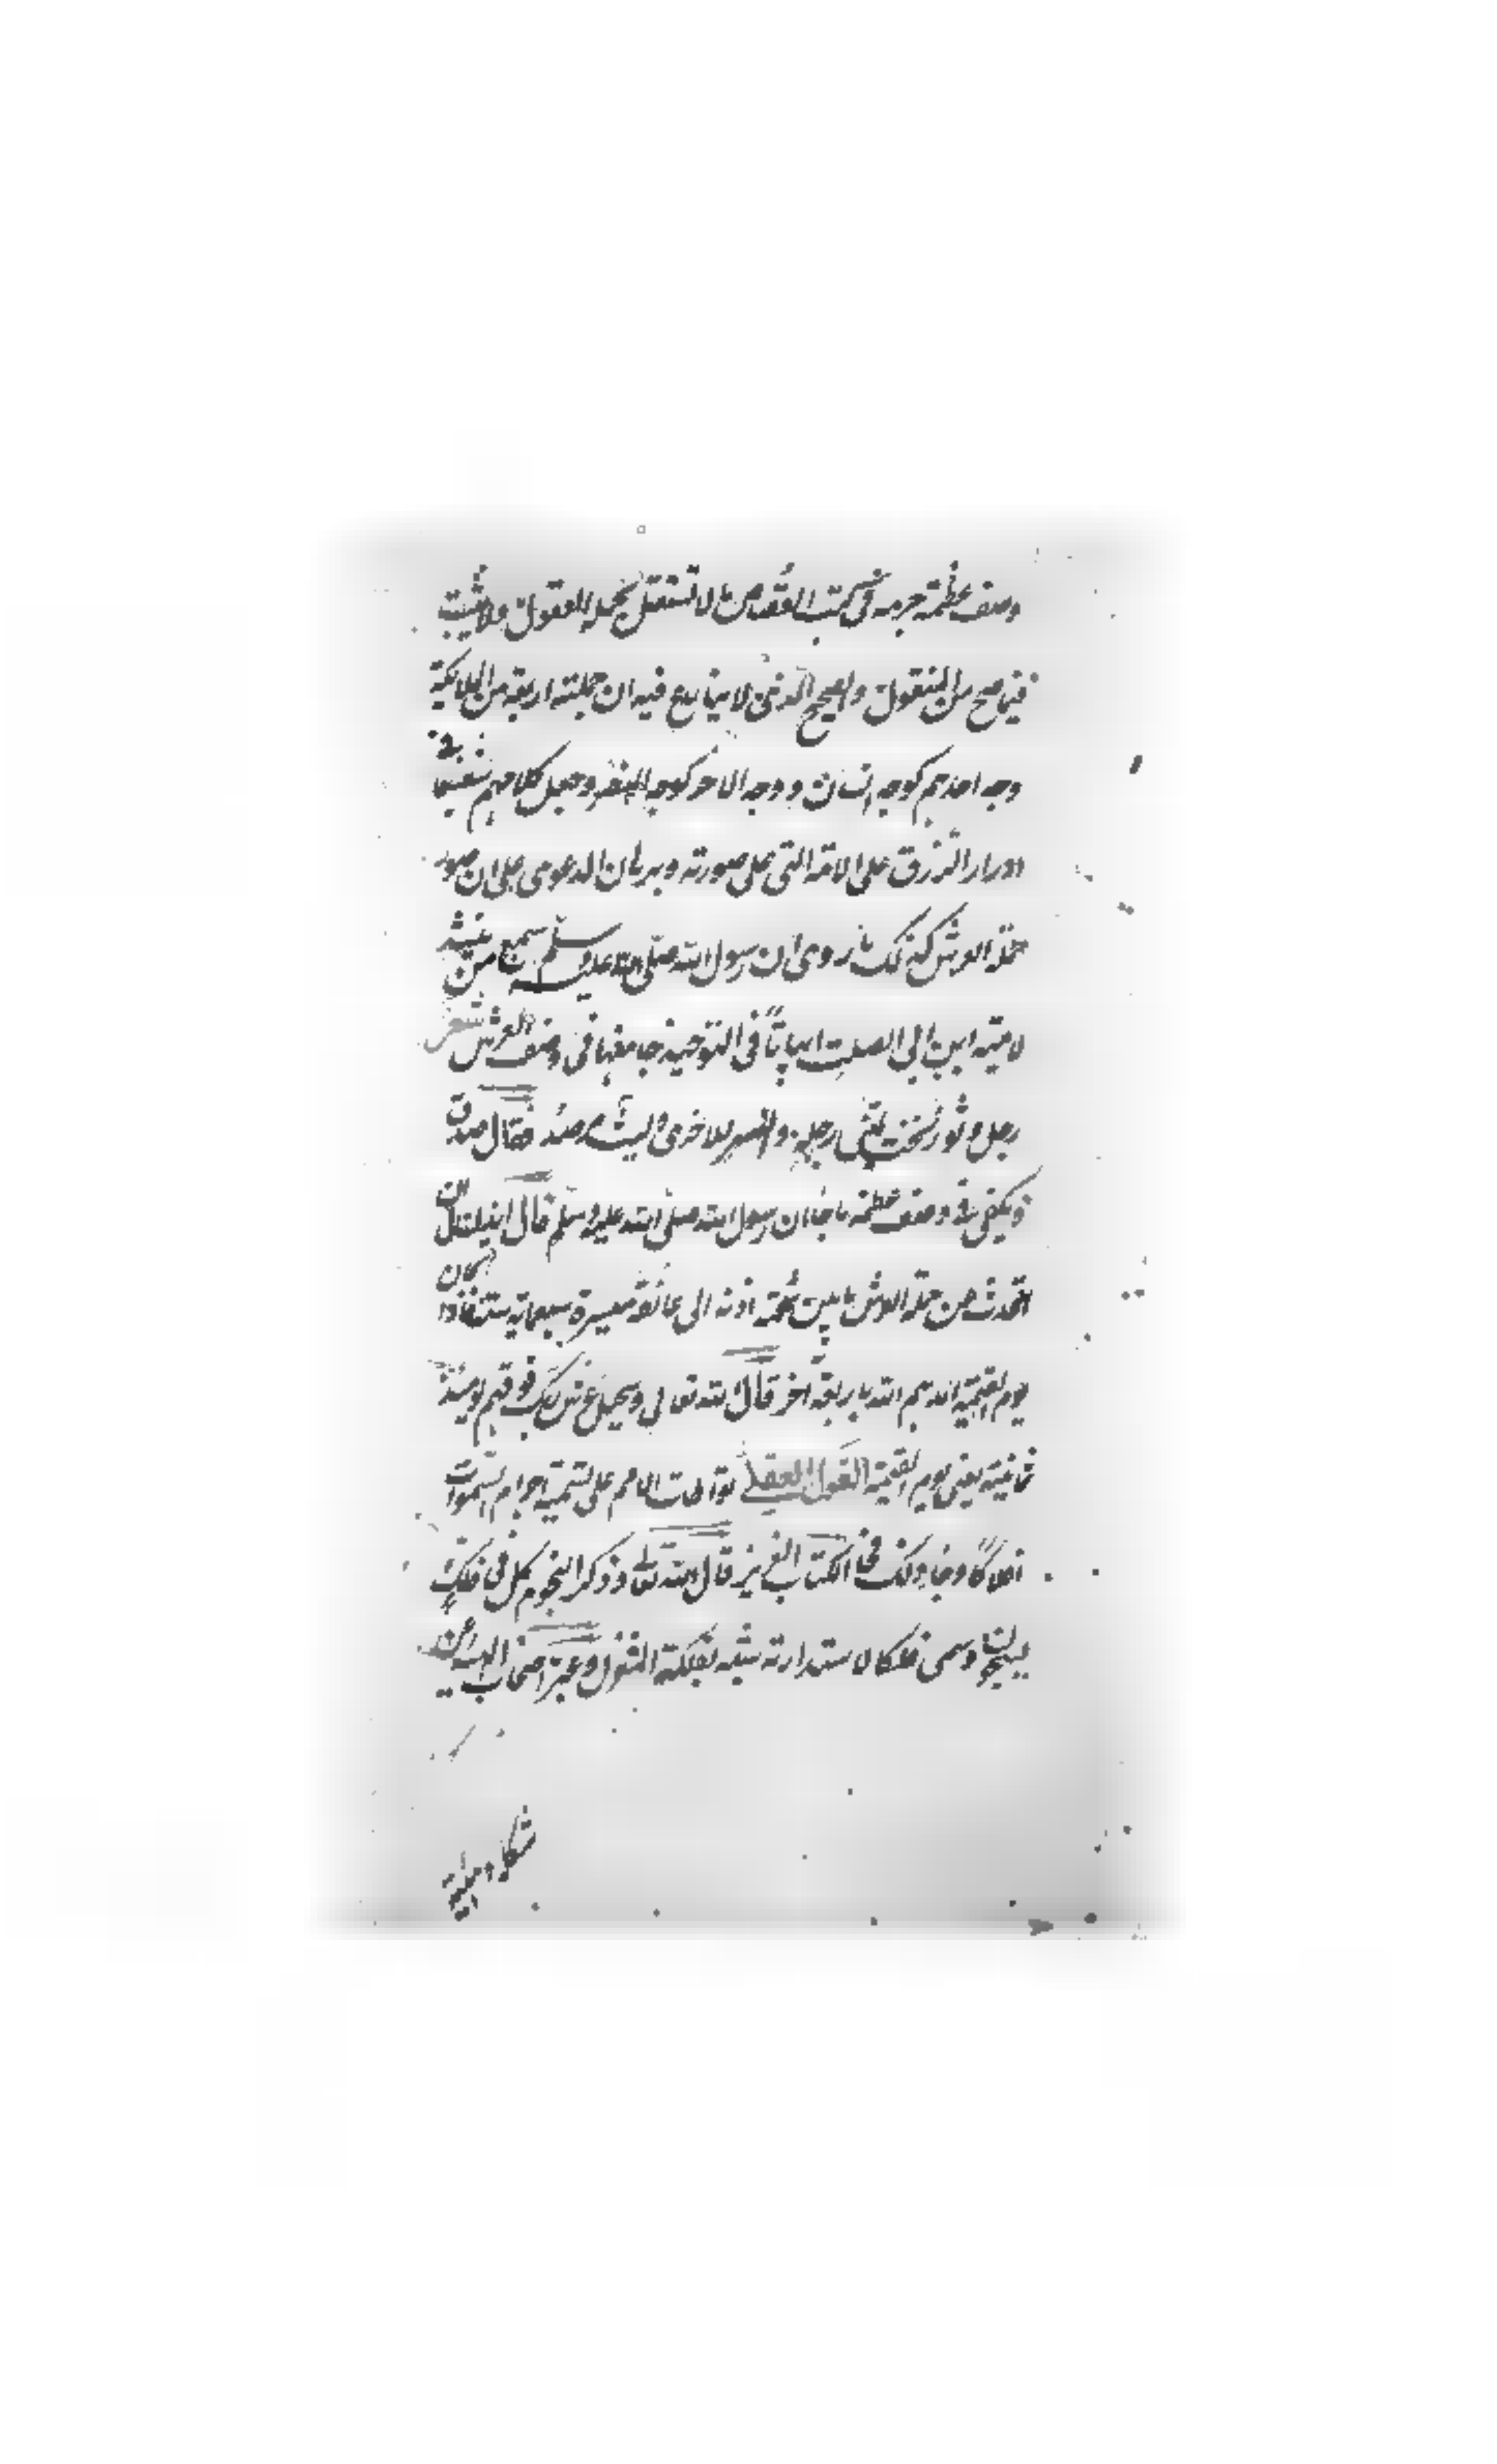 وصف عظمة جرمه في كتب القصاص ما لا تستقل بحمله العقول ولا يثبت
فيما صح من المنقول والصحيح الذي لا ينازع فيه ان حملته اربعة من الملائكة
وجه احدهم كوجه انسان ووجه الاخر كوجه وجعل كلا منهم شفيعا في
ادرار الرزق على الامة التي على صورته وبرهان الدعوى على ان صور
حملة العرش كذلك ما روى ان رسول الله صلى الله عليه وسلم سمع من ينشد
لامية ابن ابي الصلت ابياتا في التوحيد جا منها في وصف العرش شعر
رجل وثور تحت رجل والنسر للاخرى وليث مرصد فقال صدق
ويكفي في وصف عظمة ما جا ان رسول الله صلى الله عليه وسلم قال ان
اتحدث عن حملة العرش ما بين شحمة اذنه الى عاتقه مسيرة سبعماية سنة فاذا كان
يوم القيمة ايدهم الله باربعة اخر قال الله تعالى ويحمل عرش ربك فوقهم يومئذ
ثمانية يعني يوم القيمة القول العقلي تواطات الامم على تسمية اجرام السموات
افلاكا وجا ذلك في الكتاب العزيز قال الله تعالى وذكر النجوم كل في فلك
يسبحون وسمي فلكا لاستدارته شبه بفلكة المغزل وعبر اصحاب